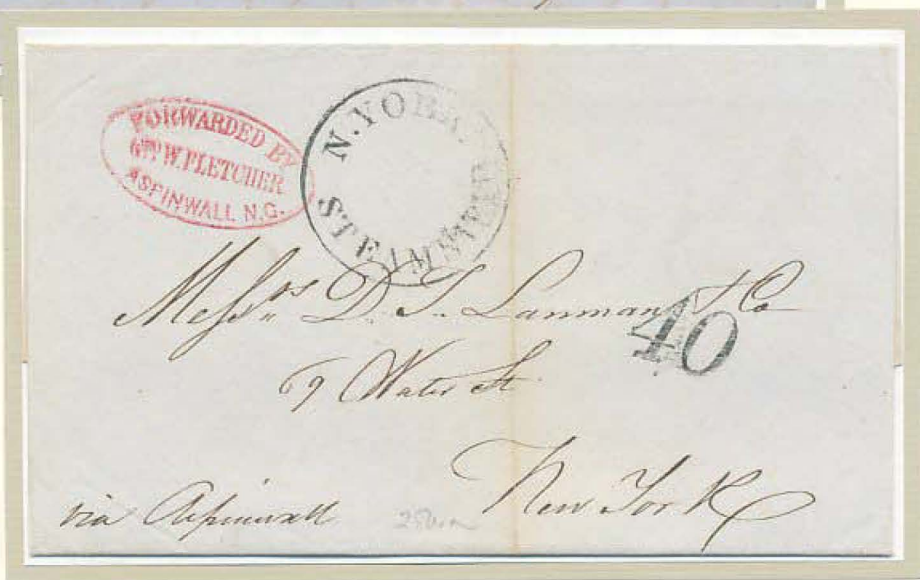 FORWARDED BY
Geo W. FLETCHER
ASPINWALL N.G.
N. YORK
STEAMSHIP
Messrs D. T. Lanman & Co
40
69 Water St
New York
via Aspinwall